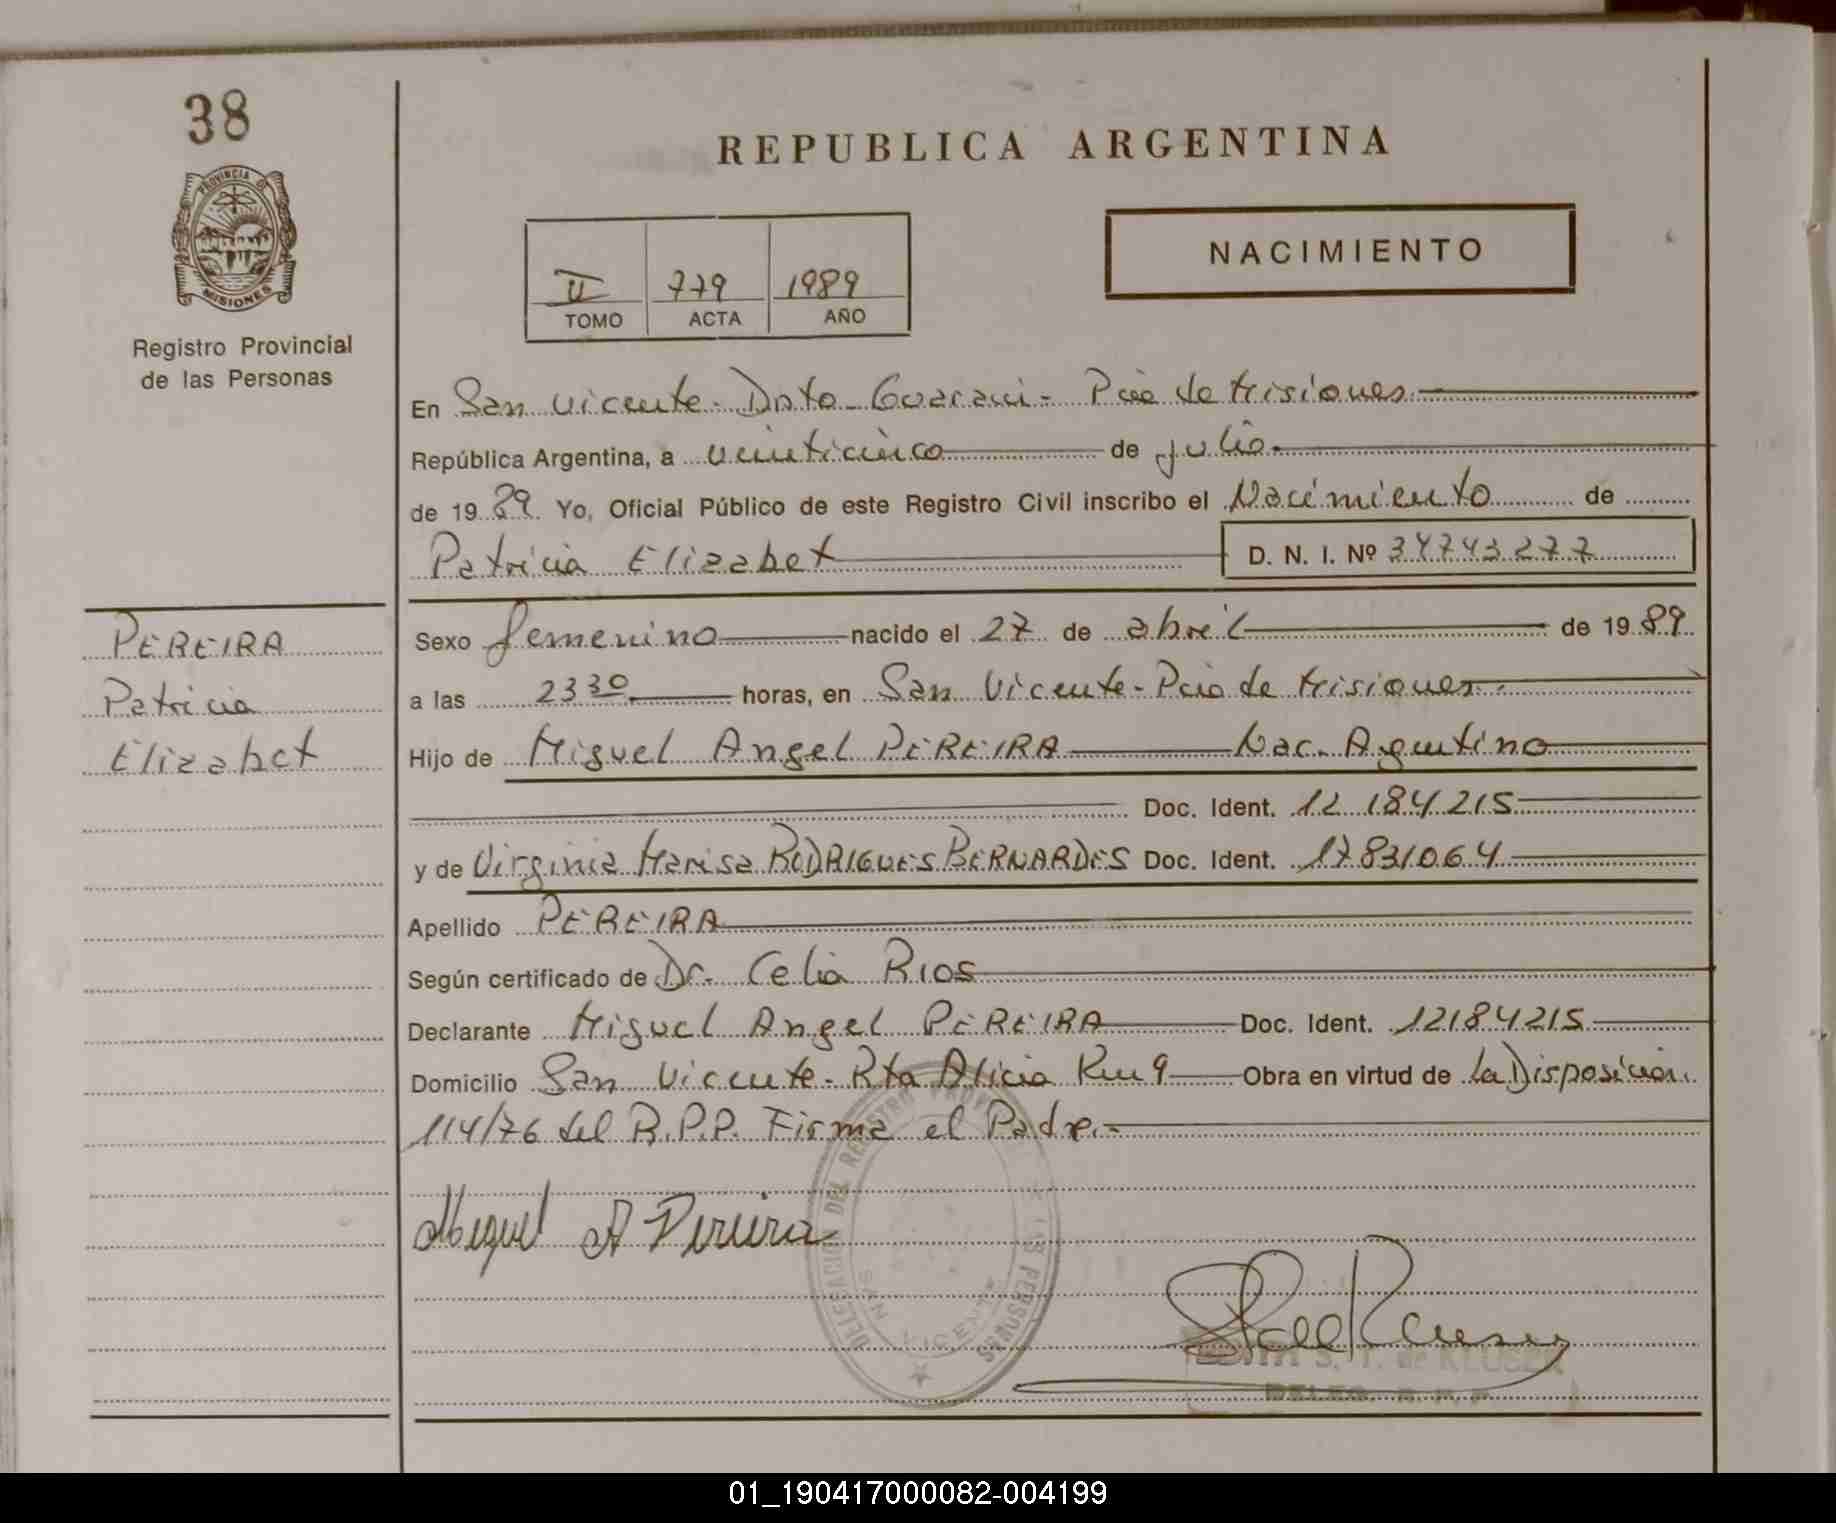 38
PROVINCIA DE
MISIONES
Registro Provincial
de las Personas
REPUBLICA ARGENTINA
NACIMIENTO
II 779 1989
TOMO ACTA AÑO
En San Vicente - Dpto Guaraní - Pcia de Misiones.
República Argentina, a veinticinco de julio.
de 1989. Yo, Oficial Público de este Registro Civil inscribo el Nacimiento de
Patricia Elizabet D. N. I. Nº 34743277
PEREIRA
Patricia
Elizabet
Sexo femenino nacido el 27 de abril de 1989
a las 23 30 horas, en San Vicente - Pcia de Misiones.
Hijo de Miguel Angel PEREIRA Nac. Argentino
Doc. Ident. 12.184.215
y de Virginia Marisa RODRIGUES BERNARDES Doc. Ident. 17831064
Apellido PEREIRA
Según certificado de Dr. Celia Rios
Declarante Miguel Angel PEREIRA Doc. Ident. 12184215
Domicilio San Vicente - Rta Alicia Km 9 Obra en virtud de La Disposición
114/76 del R.P.P. Firma el Padre.-
Miguel A Pereira
DELEGACION DEL REGISTRO PROV. LAS PERSONAS
SAN VICENTE
S. T. de KEUSEN
DELEG. R. P. P.
01_190417000082-004199